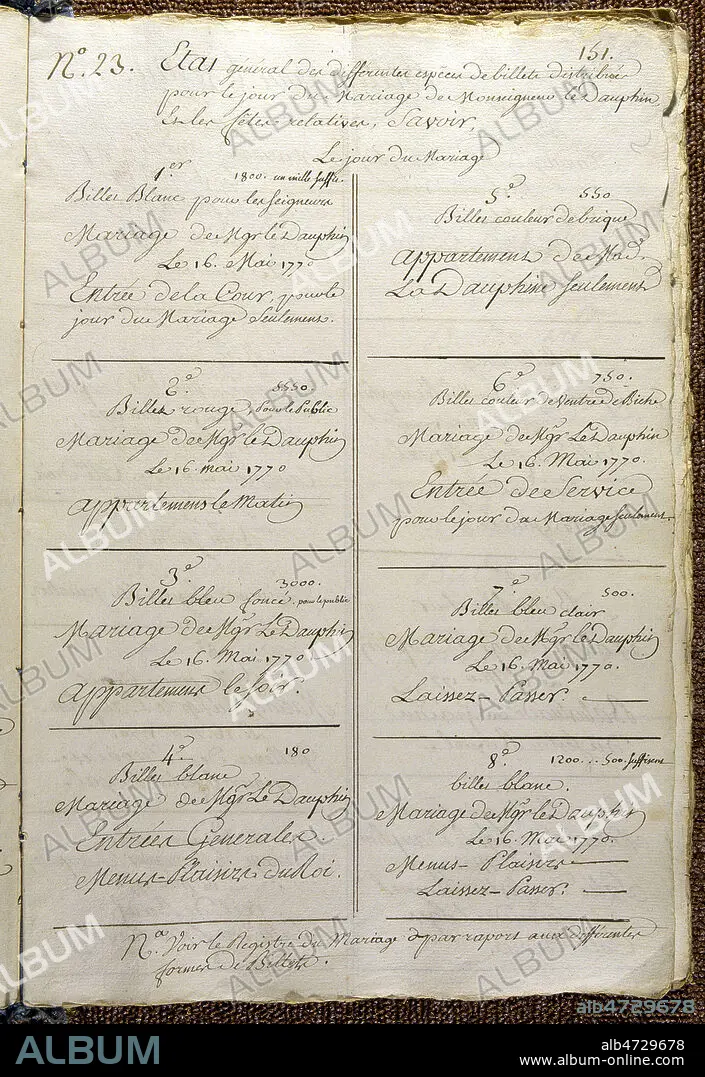 151.
N.º 23. Etat général des differentes espèces de billets distribués
pour le jour du Mariage de Monseigneur le Dauphin
Et les fêtes relatives, Savoir,
Le jour du Mariage
1.er 1800. un mille suffit.
Billet Blanc pour les Seigneurs
Mariage de Mgr le Dauphin
Le 16. Mai 1770
Entrée de la Cour, pour le
jour du Mariage Seulement.
2.e 5550.
Billet rouge, pour le Public
Mariage de Mgr le Dauphin
Le 16. mai 1770
appartemens le Matin
3.e 3000.
Billet bleu foncé. pour le public
Mariage de Mgr Le Dauphin
Le 16. Mai 1770
appartemens le Soir.
4.e 180
Billet blanc
Mariage de Mgr Le Dauphin
Entrées Generales.
Menus-Plaisirs du Roi.
5.e 550
Billet couleur de brique
appartement de Mad.e
La Dauphine Seulement
6.e 750.
Billet couleur de Ventre de Biche
Mariage de Mgr Le Dauphin
Le 16. Mai 1770.
Entrée de Service
pour le jour du Mariage Seulement.
7.e 500.
Billet bleu clair
Mariage de Mgr le Dauphin
Le 16. Mai 1770.
Laissez-Passer.
8.e 1200... 500. suffisent
billet blanc.
Mariage de Mgr le Dauphin
Le 16. Mai 1770.
Menus-Plaisirs
Laissez-Passer.
N.a Voir le Registre du Mariage par raport aux differentes
formes de Billets.
alb4729678
ALBUM
alb4729678
www.album-online.com